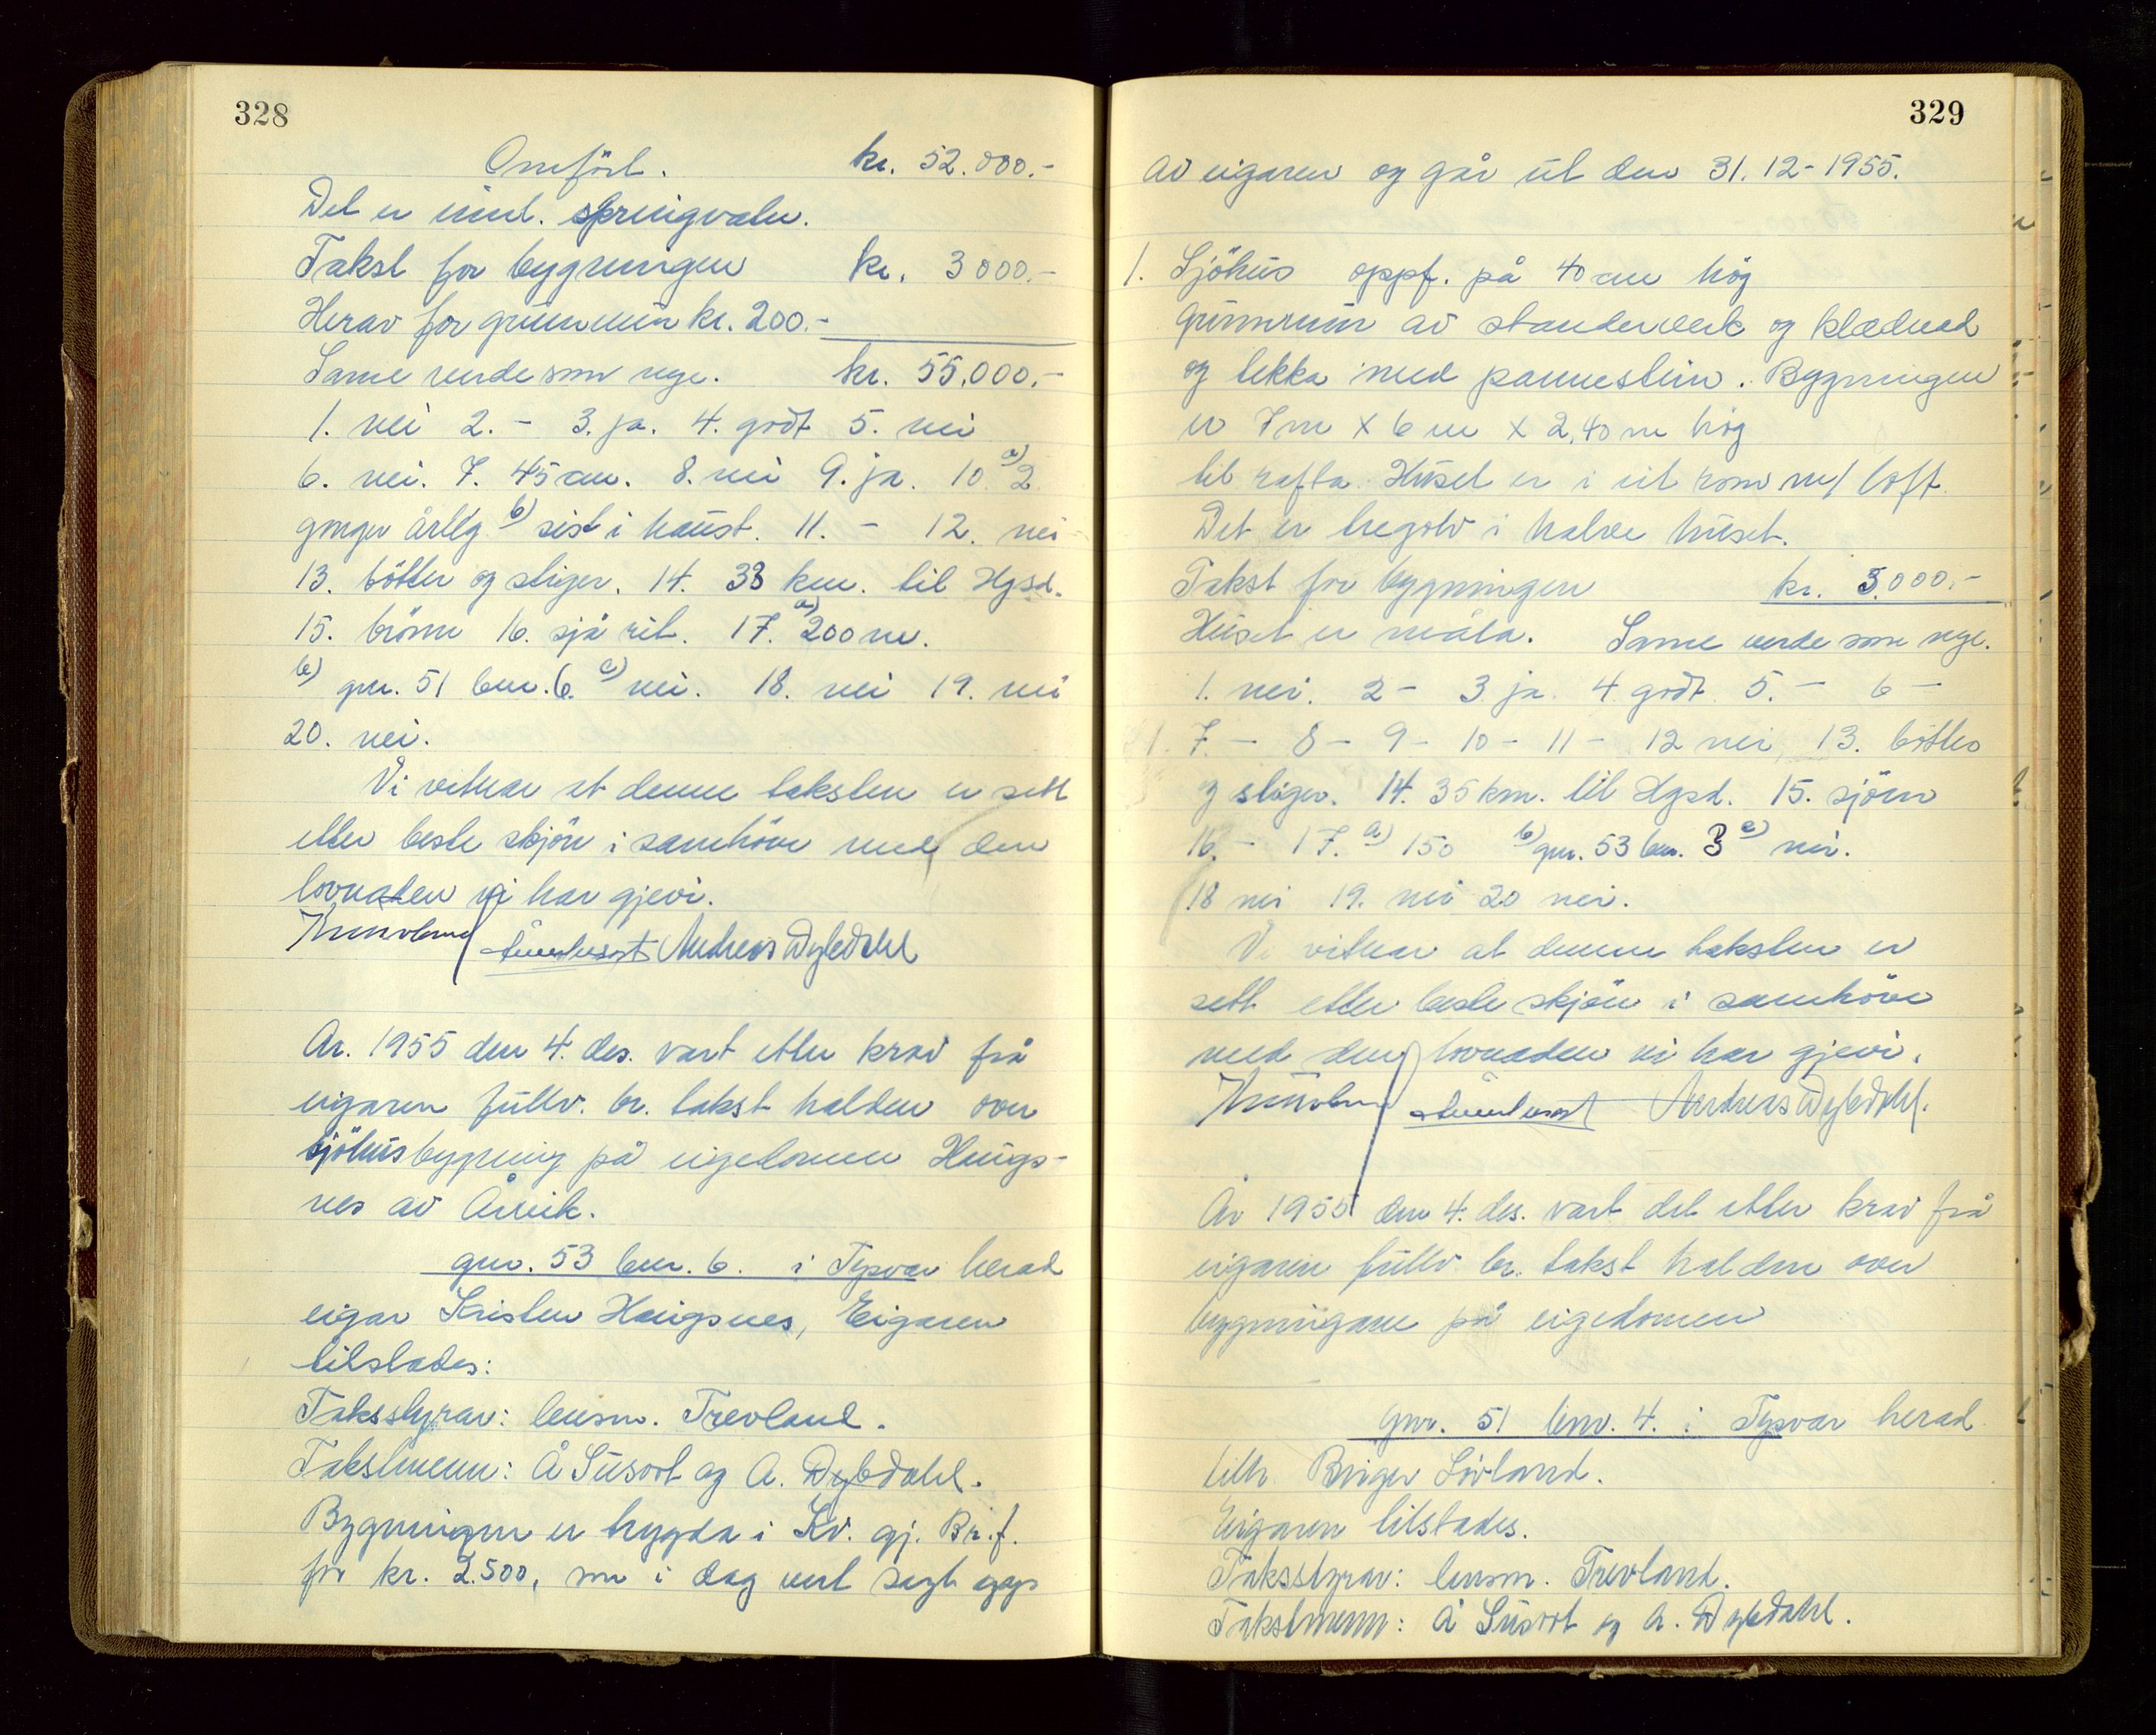 328
Omført. kr. 52.000.-
Det er innl. springvatn.
Takst for bygningen kr. 3000.-
Herav for grunnmur kr. 200.-
Same verde som nye. kr. 55.000.-
1. nei 2. - 3. ja. 4. godt 5. nei
6. nei. 7. 45 cm. 8. nei 9. ja. 10. a) 2
gonger årleg b) sist i haust. 11. - 12. nei
13. bötter og stiger. 14. 38 km. til Hgsd.
15. brönn 16. sjå rit. 17. a) 200 m.
b) gnr. 51 bnr. 6. c) nei. 18. nei 19. nei
20. nei.
Vi vitnar at denne taksten er sett
etter beste skjön i samhöve med den
lovnaden vi har gjevi.
Andreas Dybdahl
År. 1955 den 4. des. vart etter krav frå
eigaren fullv. br. takst halden over
sjöhusbygning på eigedomen Haugs-
nes av Årvik.
gnr. 53 bnr. 6. i Tysvær herad
eigar Kristen Haugsnes, Eigaren
tilstades:
Taksstyrar: lensm. Trevland.
Takstmenn: Å Susort og A. Dybdahl.
Bygningen er trygda i Kv. gj. Br.f.
for kr. 2.500, som i dag vert sagt opp
329
av eigaren og går ut den 31.12-1955.
1. Sjöhus oppf. på 40 cm hög
Grunnmur av standerverk og klædnad
og tekka med pannestein. Bygningen
er 7 m x 6 m x 2,40 m hög
til rafta. Huset er i eit rom m/ loft.
Det er tregolv i halve huset.
Takst for bygningen kr. 3.000.-
Huset er måla. Same verde som nye.
1. nei. 2 - 3 ja. 4. godt 5. - 6 -
7. - 8 - 9 - 10 - 11 - 12 nei, 13. bötter
og stiger. 14. 35 km. til Hgsd. 15. sjöen
16. - 17. a) 150 b) gnr. 53 bnr. 3 c) nei.
18 nei 19. nei 20 nei.
Vi vitnar at denne taksten er
sett etter beste skjön i samhöve
med den lovnaden vi har gjevi.
Andreas Dybdahl.
År 1955 den 4. des. vart det etter krav frå
eigaren fullv. br. takst halden over
bygningane på eigedomen
gnr. 51 bnr. 4. i Tysvær herad
tilh. Birger Lövland.
Eigaren tilstades.
Taksstyrar: lensm. Trevland.
Takstmenn: Å Susort og A. Dybdahl.